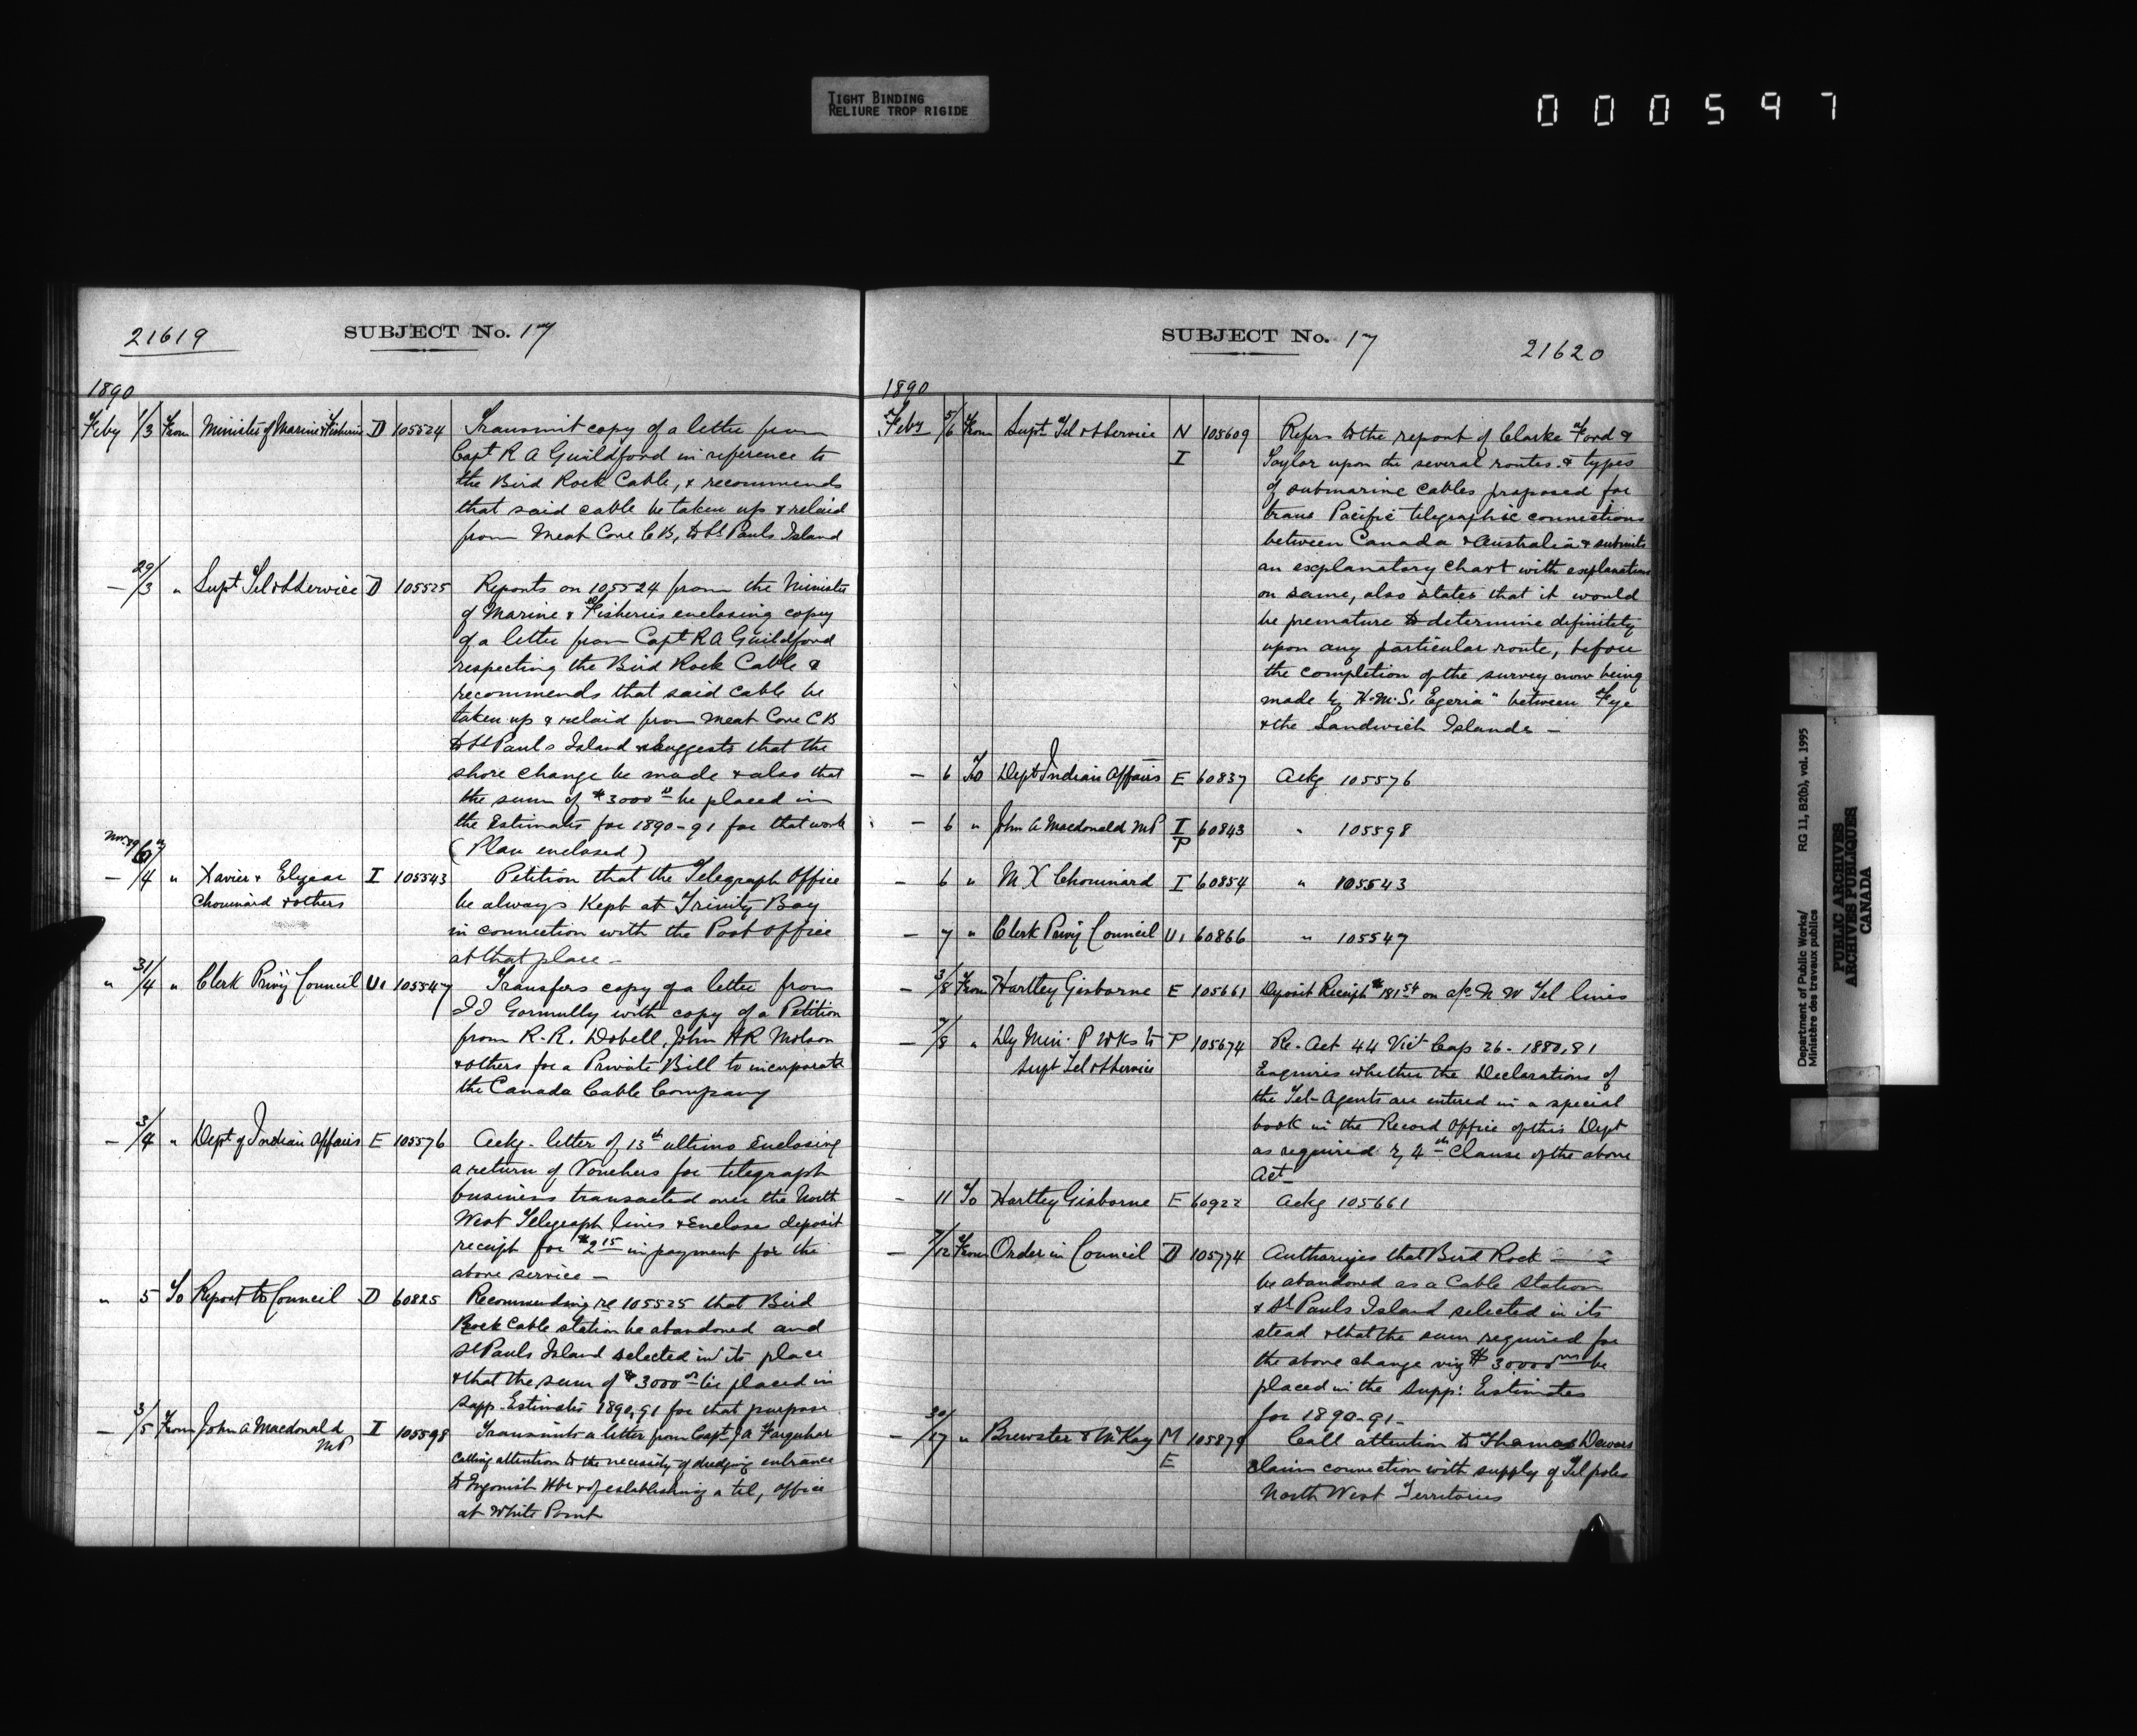 TIGHT BINDING
RELIURE TROP RIGIDE
000597
21619
SUBJECT No. 17
1890
Feby 1/3 From Minister of Marine & Fisheries D 105524 Transmit copy of a letter from
Capt R A Guildford in reference to
the Bird Rock Cable, & recommends
that said cable be taken up & relaid
from Meat Cove C B, to St Pauls Island
— 29/3 " Supt Tel & S Service D 105525 Reports on 105524 from the Minister
of Marine & Fisheries enclosing copy
of a letter from Capt R A Guildford
respecting the Bird Rock Cable &
recommends that said cable be
taken up & relaid from Meat Cove C B
to St Pauls Island & suggests that the
shore change be made & also that
the sum of $3000 be placed in
the Estimates for 1890-91 for that work
(Plan enclosed)
Nov. 89
— /4 " Xavier & Elzear I 105543 Petition that the Telegraph Office
Chouinard & others be always Kept at Trinity Bay
in connection with the Post Office
at that place —
" 31/4 " Clerk Privy Council U. 105547 Transfers copy of a letter from
J J Gormully with copy of a Petition
from R. R. Dobell, John H R Molson
& others for a Private Bill to incorporate
the Canada Cable Company
— 3/4 " Dept of Indian Affairs E 105576 Ackg. letter of 13th ultimo Enclosing
a return of Vouchers for telegraph
business transacted over the North
West Telegraph lines & Encloses deposit
receipt for $2 15 in payment for the
above service —
" 5 To Report to Council D 60825 Recommending re 105525 that Bird
Rock Cable station be abandoned and
St Pauls Island selected in its place
& that the sum of $3000 be placed in
Supp. Estimates 1890,91 for that purpose
— 3/5 From John A Macdonald I 105598 Transmits a letter from Capt J A Farquhar
MP calling attention to the necessity of dredging entrance
to Ingonish Hbr & of establishing a tel, office
at White Point
SUBJECT No. 17
21620
1890
Feby 5/6 From Supt Tel & S Service N 105609 Refers to the report of Clarke Ford &
I Taylor upon the several routes & types
of submarine cables proposed for
trans Pacific telegraphic connections
between Canada & Australia & submits
an explanatory chart with explanations
on same, also states that it would
be premature to determine definitely
upon any particular route, before
the completion of the survey now being
made by H.M.S. Egeria" between Fye
& the Sandwich Islands —
— 6 To Dept Indian Affairs E 60837 Ackg 105576
— 6 " John A Macdonald MP I 60843 " 105598
P
— 6 " M X Chouinard I 60854 " 105543
— 7 " Clerk Privy Council U. 60866 " 105547
— 3/8 From Hartley Gisborne E 105661 Deposit Receipt $181 54 on a/c N W Tel lines
— 7/8 " Dy Min. P Wks to P 105674 Re. Act 44 Vict Cap 26 - 1880,81
Supt Tel & S Service Enquires whether the Declarations of
the Tel-Agents are entered in a special
book in the Record Office of this Dept
as required by 4th Clause of the above
Act —
— 11 To Hartley Gisborne E 60922 Ackg 105661
— 7/12 From Order in Council D 105774 Authorizes that Bird Rock
be abandoned as a Cable Station
& St Pauls Island selected in its
stead & that the sum required for
the above change viz be
placed in the Supp: Estimates
for 1890-91 -
— 30/17 " Brewster & McKay M 105879 Call attention to Thomas Dewars
E claim connection with supply of Tel poles
North West Territories
Department of Public Works/
Ministère des travaux publics
RG 11, B2(b), vol. 1995
PUBLIC ARCHIVES
ARCHIVES PUBLIQUES
CANADA